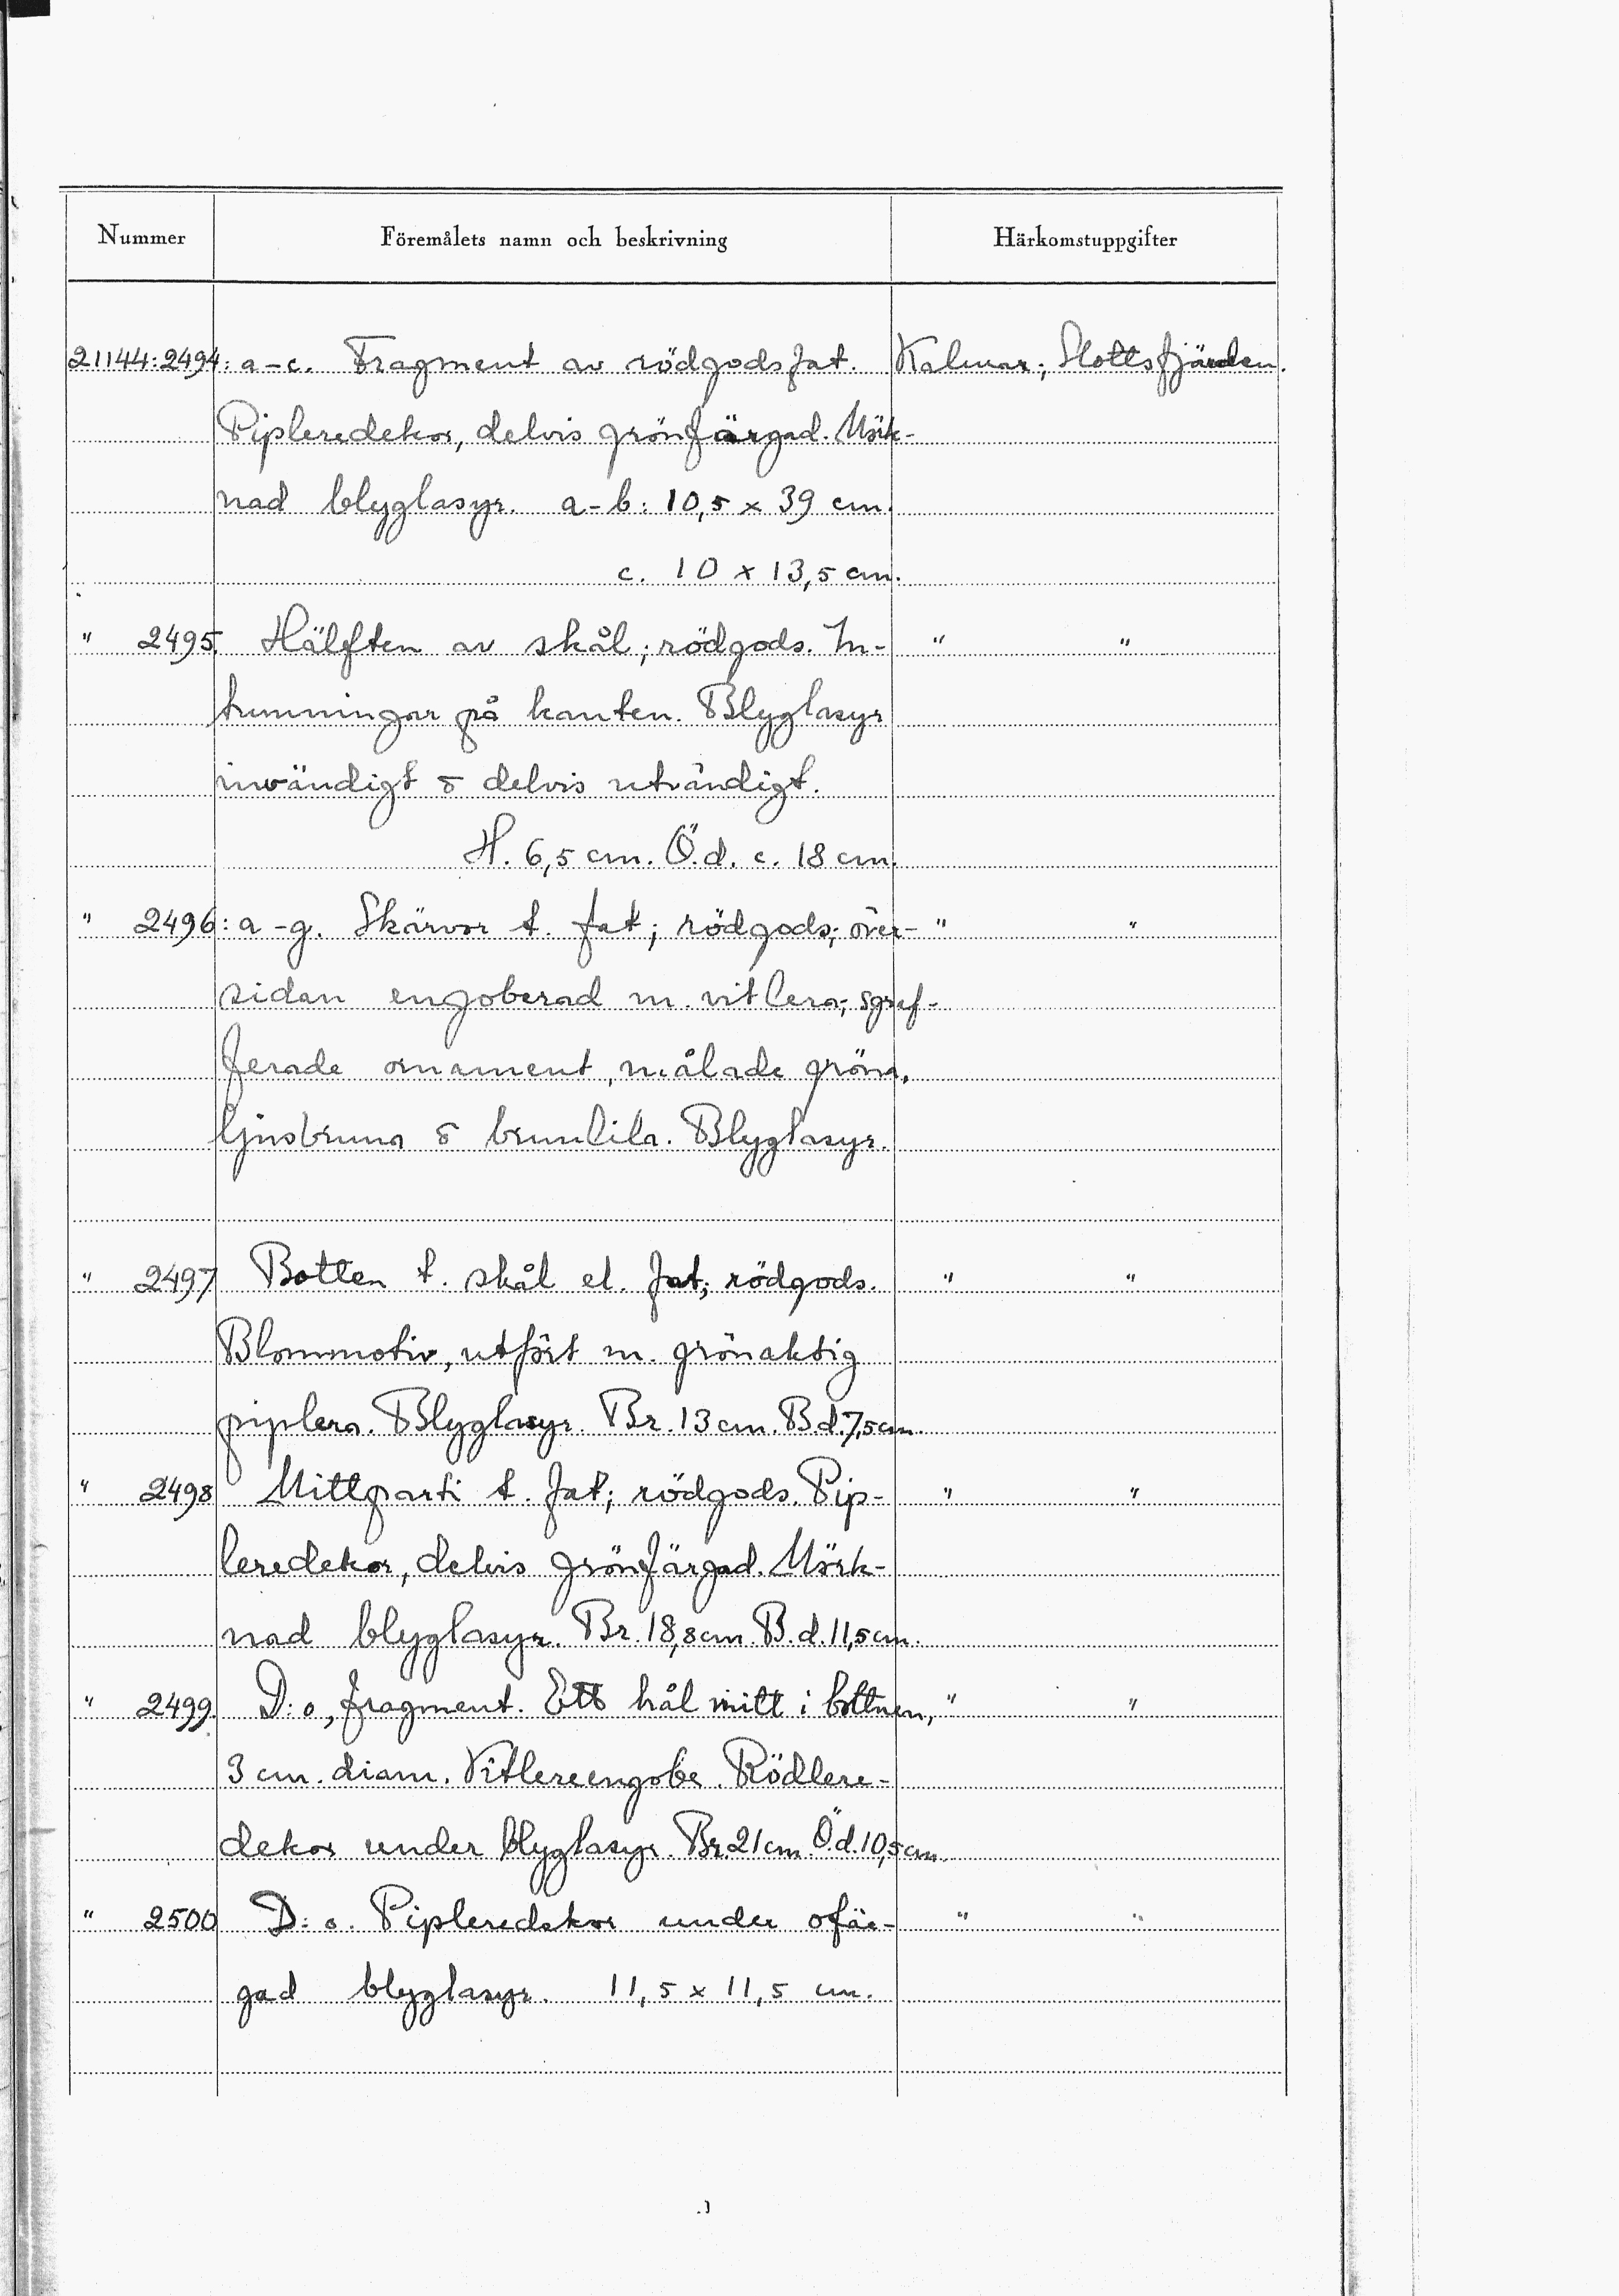 Nummer Föremålets namn och beskrivning Härkomstuppgifter
21144:2494: a-c. Fragment av rödgodsfat. Kalmar; Slottsfjärden.
Pipleredekor, delvis grönfärgad. Mörk-
nad blyglasyr. a-b: 10,5 x 39 cm.
c. 10 x 13,5 cm.
" 2495. Hälften av skål; rödgods. In- " "
tumningar på kanten. Blyglasyr
invändigt o delvis utvändigt.
H. 6,5 cm. Ö.d. c. 18 cm.
" 2496: a-g. Skärvor t. fat; rödgods; över- " "
sidan engoberad m. vitlera; sgraf-
ferade ornament, målade gröna,
ljusbruna o brunlila. Blyglasyr.
" 2497 Botten t. skål el. fat; rödgods. " "
Blommotiv, utfört m. grönaktig
piplera. Blyglasyr. Br. 13 cm. B.d. 7,5 cm.
" 2498 Mittparti t. fat; rödgods. Pip- " "
leredekor, delvis grönfärgad. Mörk-
nad blyglasyr. Br. 18,8 cm. B.d. 11,5 cm.
" 2499. D:o, fragment. Ett hål mitt i bottnen, " "
3 cm. diam. Vitlereengobe. Rödlere-
dekor under blyglasyr. Br. 21 cm. Ö.d. 10,5 cm.
" 2500 D:o. Pipleredekor under ofär- " "
gad blyglasyr. 11,5 x 11,5 cm.